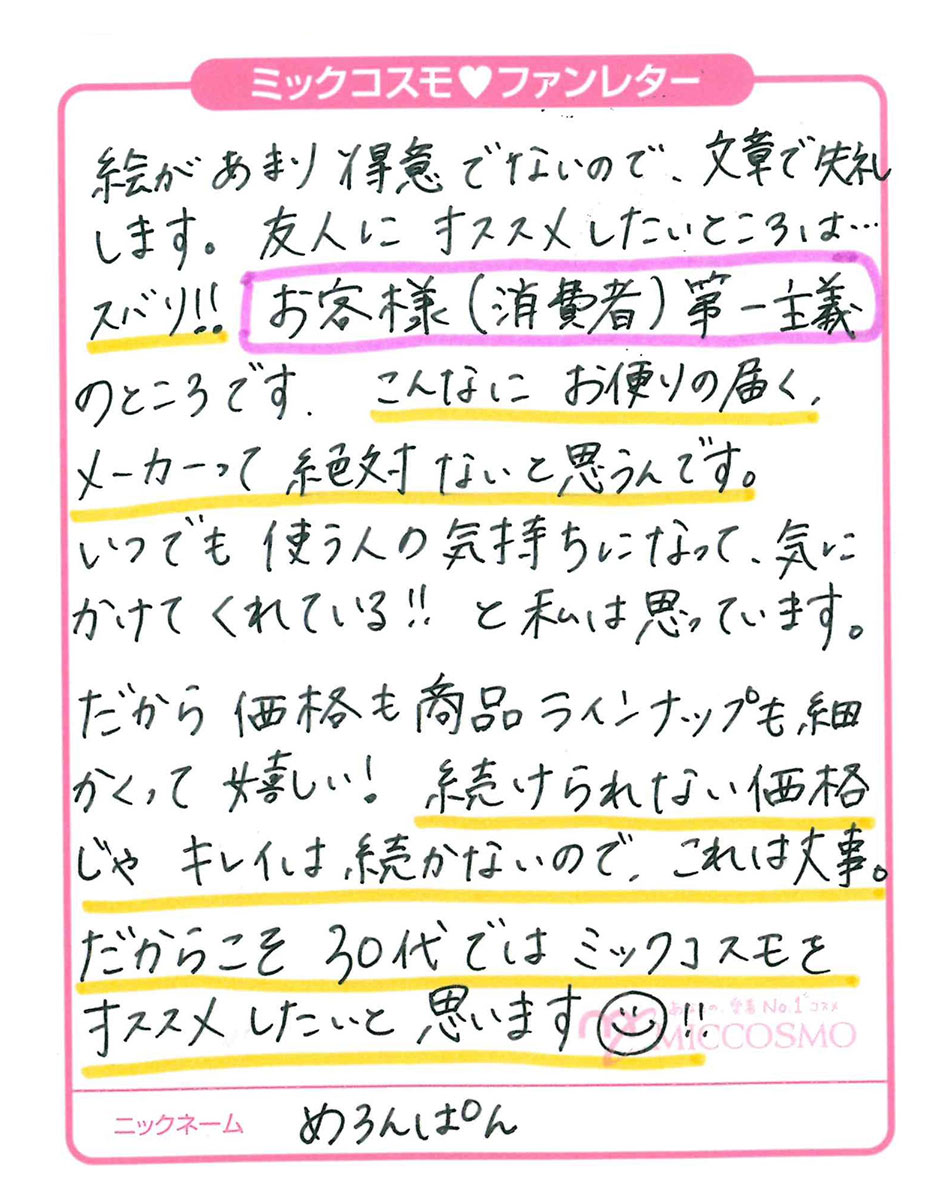 ミックコスモ♥ファンレター
絵があまり得意でないので、文章で失礼
します。友人にオススメしたいところは…
ズバリ!! お客様(消費者)第一主義
のところです. こんなにお便りの届く,
メーカーって絶対ないと思うんです。
いつでも使う人の気持ちになって、気に
かけてくれている!! と私は思っています。
だから価格も商品ラインナップも細
かくって嬉しい! 続けられない価格
じゃキレイは続かないので, これは大事。
だからこそ30代ではミックコスモを
オススメしたいと思います!!
No.1コスメ
MICCOSMO
ニックネーム めろんぱん